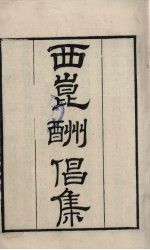 西崑酬倡集